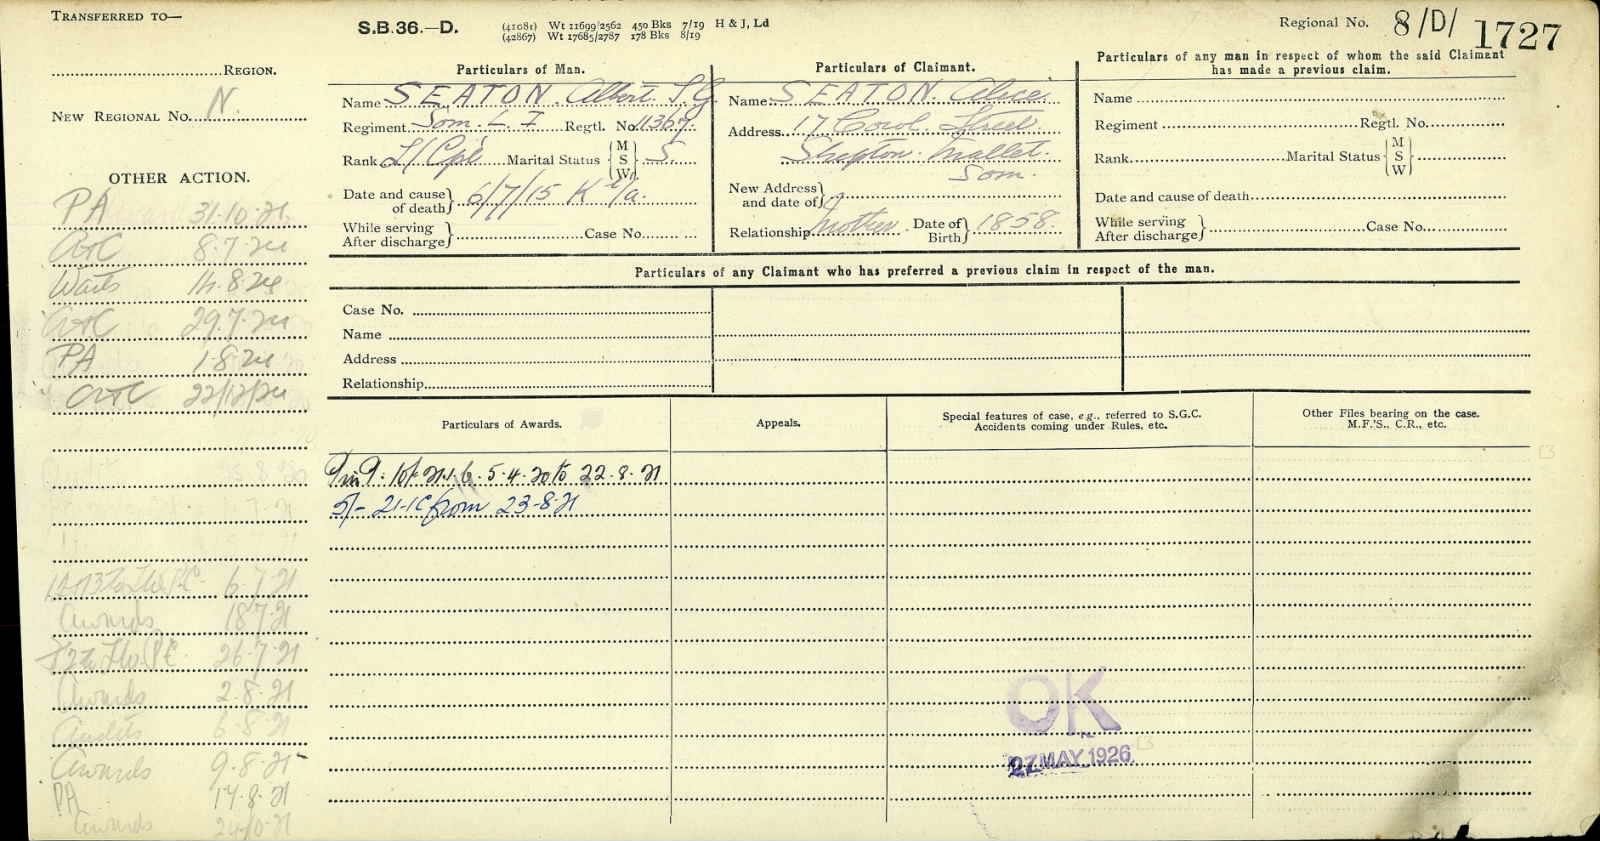 TRANSFERRED TO—
S.B.36.—D.
(41081) Wt 11699/2562 450 Bks 7/19 H & J, Ld
(42867) Wt 17685/2787 178 Bks 8/19
Regional No. 8/D/ 1727
REGION.
NEW REGIONAL No. N.
OTHER ACTION.
PA 31-10-21
A&C 8.7.24
Waits 14.8.24
A&C 29.7.24
PA 1.8.24
A&C 22/12/24
6.7.21
Awards 18.7.21
26.7.21
Awards 2.8.21
Audits 6.8.21
Awards 9.8.21
PA 17.8.21
Awards
Particulars of Man.
Name SEATON. Albert
Regiment Som. L I Regtl. No. 11367.
Rank L/Cpl Marital Status {M S W} S.
Date and cause of death} 6/7/15 K i/a.
While serving
After discharge} Case No.
Particulars of Claimant.
Name SEATON. Alice
Address 17 Street.
Shepton. Mallet.
Som.
New Address
and date of}
Relationship Mother. Date of Birth} 1858.
Particulars of any man in respect of whom the said Claimant
has made a previous claim.
Name
Regiment Regtl. No.
Rank Marital Status {M S W}
Date and cause of death
While serving
After discharge} Case No.
Particulars of any Claimant who has preferred a previous claim in respect of the man.
Case No.
Name
Address
Relationship
Particulars of Awards.
5.4.20 to 22.8.21
5/- 21-1C from 23-8-21
Appeals.
Special features of case, e.g., referred to S.G.C.
Accidents coming under Rules, etc.
OK
27 MAY 1926
Other Files bearing on the case.
M.F.'S., C.R., etc.